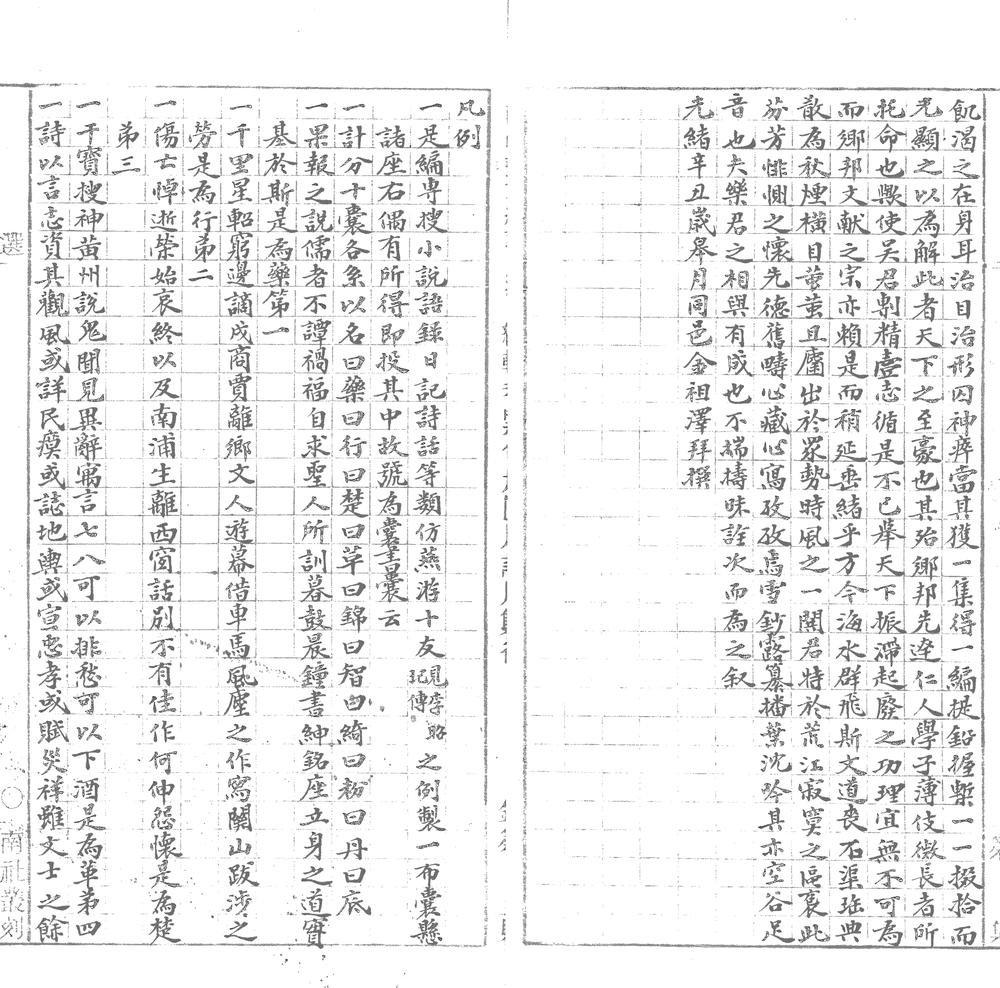 飢渴之在身耳治目治形囚神瘁當其獲一集得一編提鉛握槧一一掇拾而
光顯之以為解此者天下之至豪也其殆鄉邦先達仁人學子薄伎微長者所
託命也歟使吴君剬精壹志循是不已舉天下振滯起廢之功理宜無不可為
而鄉邦文獻之宗亦賴是而稍延垂緒乎方今海水群飛斯文道喪石渠班典
散為秋煙橫目蚩蚩且麕出於眾勢時風之一閧君特於荒江寂寞之區裒此
芬芳悱惻之懷先德舊疇心藏心寫孜孜焉雪鈔露纂播葉沈吟其亦空谷足
音也夫樂君之相與有成也不端檮昧詮次而為之叙
光緒辛丑歲皋月同邑金祖澤拜撰
凡例
一是編專搜小說語錄日記詩話等類仿燕游十友見李昭玘傳之例製一布囊懸
諸座右偶有所得即投其中故號為囊書囊云
一計分十囊各系以名曰藥曰行曰楚曰草曰錦曰智曰綺曰粉曰丹曰底
一果報之說儒者不譚禍福自求聖人所訓暮鼓晨鐘書紳銘座立身之道實
基於斯是為藥第一
一千里星軺窮邊謫戍商賈離鄉文人遊幕借車馬風塵之作寫關山跋涉之
勞是為行第二
一傷亡悼逝榮始哀終以及南浦生離西窗話別不有佳作何伸怨懷是為楚
第三
一干寶搜神黃州說鬼聞見異辭寓言七八可以排愁可以下酒是為草第四
一詩以言志資其觀風或詳民瘼或誌地輿或宣忠孝或賦災祥雖文士之餘
選
○
南社叢刻